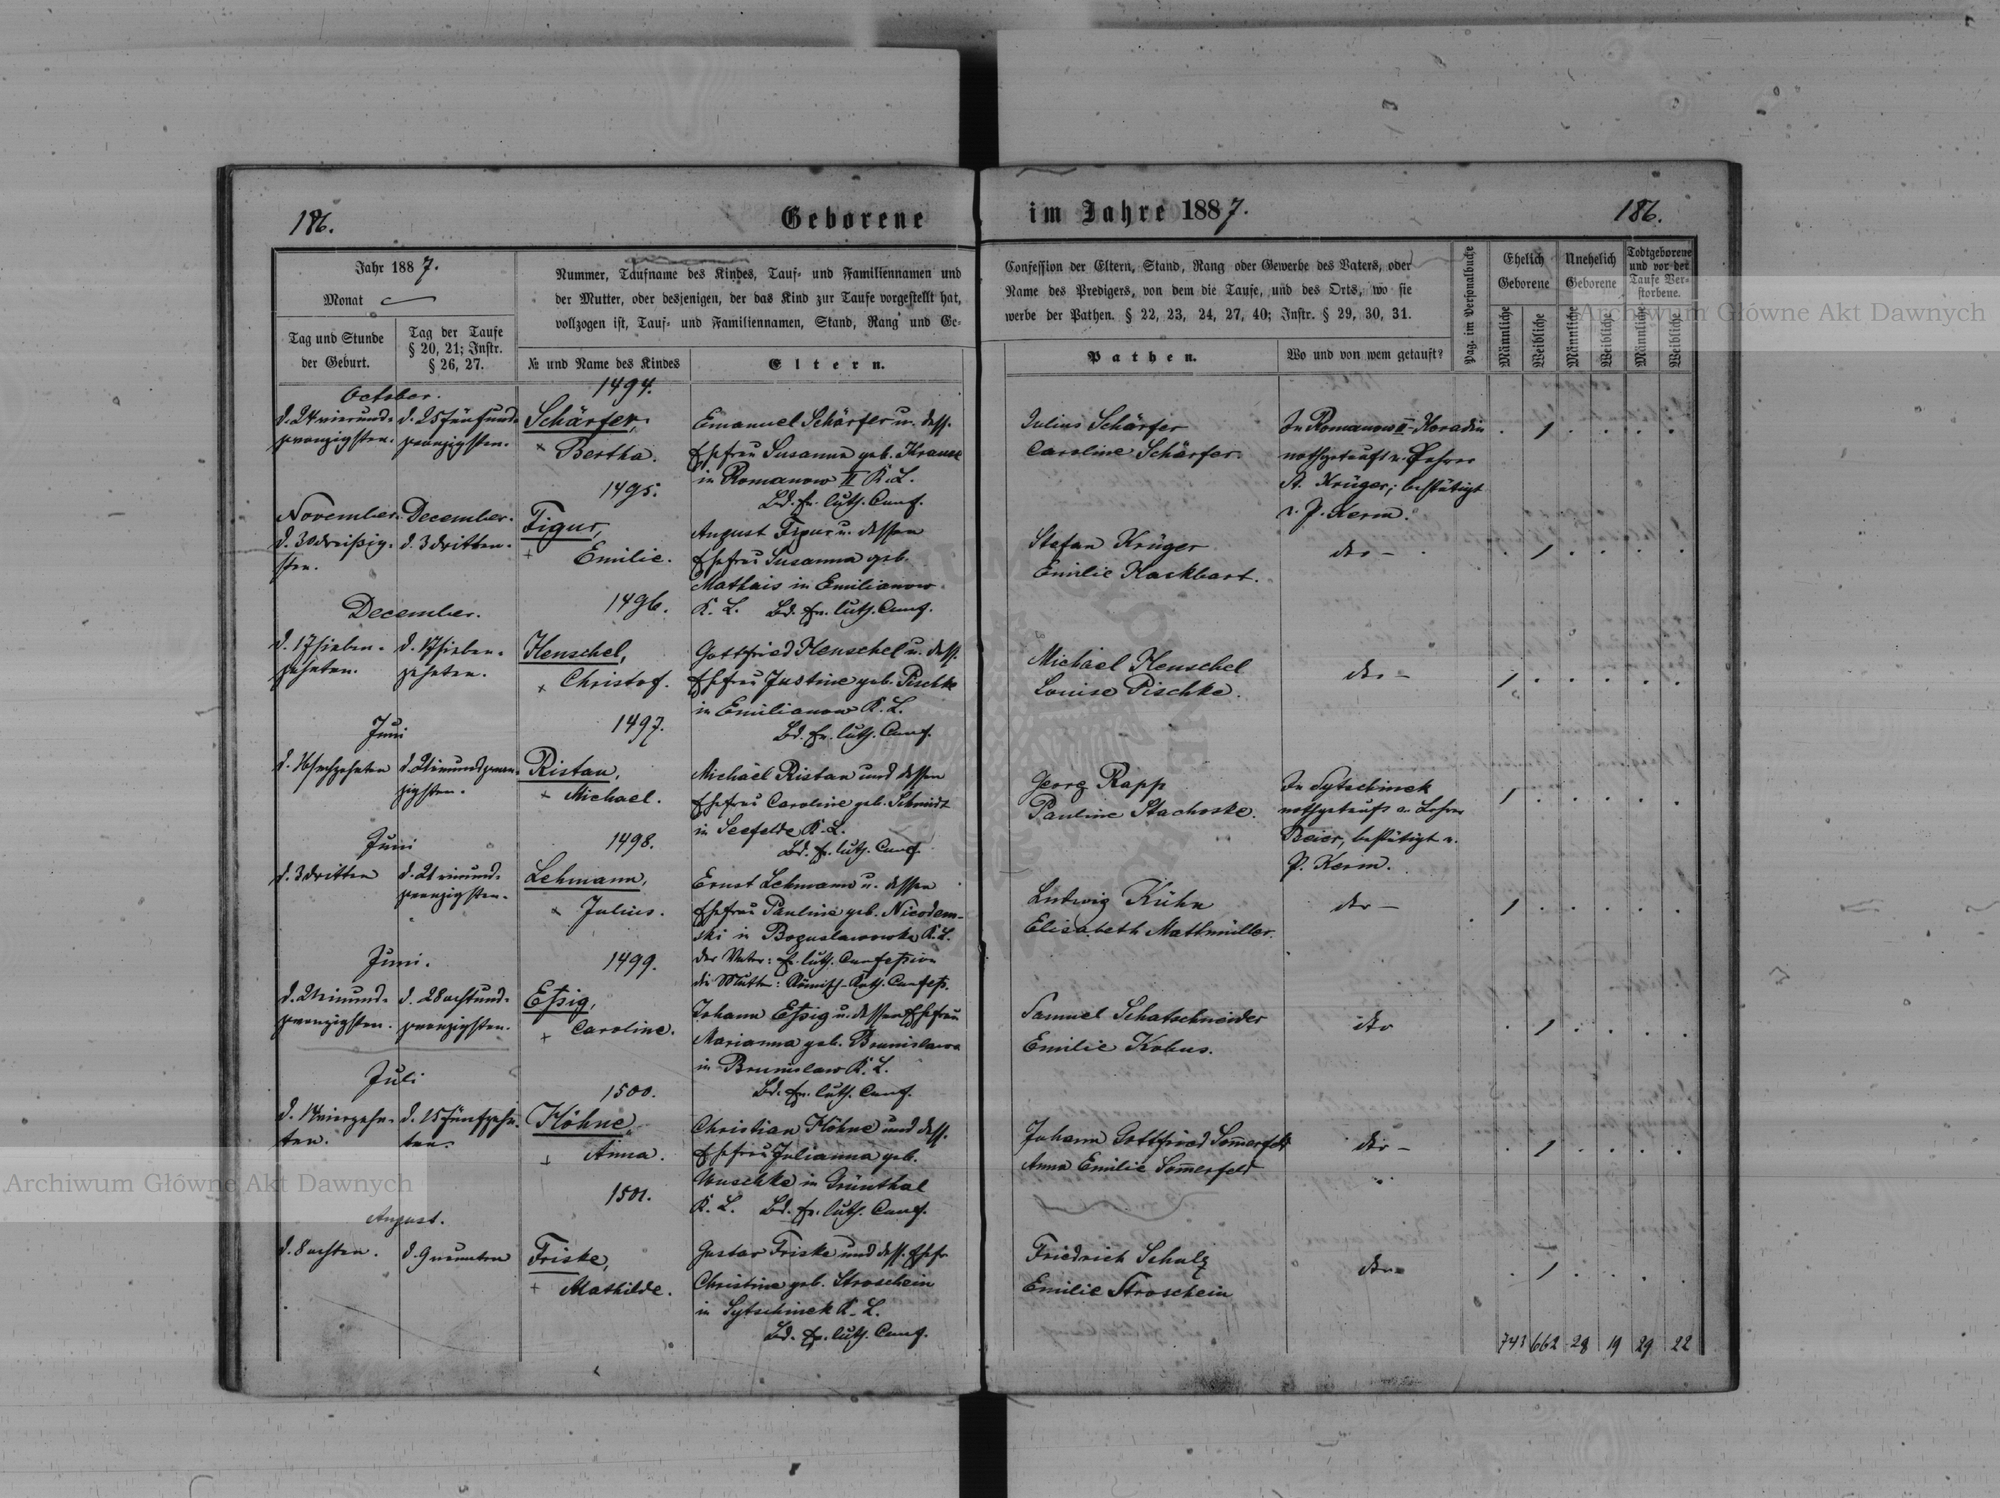 186.
Geborene
im Jahre 1887.
186.
Jahr 1887.
Monat
Tag und Stunde
der Geburt.
Tag der Taufe
§ 20, 21; Instr.
§ 26, 27.
Nummer, Taufname des Kindes, Tauf- und Familiennamen und
der Mutter, oder desjenigen, der das Kind zur Taufe vorgestellt hat,
vollzogen ist, Tauf- und Familiennamen, Stand, Rang und Ge-
№ und Name des Kindes
Eltern.
Confession der Eltern, Stand, Rang oder Gewerbe des Vaters, oder
Name des Predigers, von dem die Taufe, und des Orts, wo sie
werbe der Pathen. § 22, 23, 24, 27, 40; Instr. § 29, 30, 31.
Pathen.
Wo und von wem getauft?
Pag. im Personalbuche
Ehelich
Geborene
Unehelich
Geborene
Todtgeborene
und vor der
Taufe Ver-
storbene.
Männliche
Weibliche
Männliche
Weibliche
Männliche
Weibliche
October.
d. 24 vierund-
zwanzigsten.
d. 25 fünfund-
zwanzigsten.
1494.
Schärfer,
+ Bertha.
Emanuel Schärfer u. dess.
Ehefrau Susanna geb. Krause
in Romanow II K. L.
Bd. Ev. luth. Conf.
Julius Schärfer
Caroline Schärfer.
In Romanow II-Horadin
nothgetauft v. Lehrer
A. Krüger; bestätigt
v. P. Kerm.
1
November.
d. 30 dreißig-
sten.
December.
d. 3 dritten.
1495.
Figur,
+ Emilie.
August Figur u. dessen
Ehefrau Susanna geb.
Mathais in Emilianow
K. L. Bd. Ev. luth. Conf.
Stefan Krüger
Emilie Hackbart.
dto –
1
December.
d. 17 sieben-
zehnten.
d. 17 sieben-
zehnten.
1496.
Henschel,
+ Christof.
Gottfried Henschel u. dess.
Ehefrau Justine geb. Pischke
in Emilianow K. L.
Bd. Ev. luth. Conf.
Michael Henschel
Louise Pischke.
dto –
1
Juni
d. 16 sechzehnten
d. 21 einundzwan-
zigsten.
1497.
Ristau,
+ Michael.
Michael Ristau und dessen
Ehefrau Caroline geb. Schmidt
in Seefelde K. L.
Bd. Ev. luth. Conf.
Georg Rapp
Pauline Stachoske.
In Sytschinek
nothgetauft v. Lehrer
Beier, bestätigt v.
P. Kerm.
1
Juni
d. 3 dritten
d. 21 einund-
zwanzigsten.
1498.
Lehmann,
+ Julius.
Ernst Lehmann u. dessen
Ehefrau Pauline geb. Nicodem-
ski in Boguslawowka K. L.
der Vater: Ev. luth. Confession
die Mutter: Römisch-Kath. Confess.
Ludwig Kühn
Elisabeth Mattmüller.
dto –
1
Juni.
d. 21 einund-
zwanzigsten.
d. 28 achtund-
zwanzigsten.
1499.
Eßig,
+ Caroline.
Johann Eßig u. dessen Ehefrau
Marianna geb.
in Brunislaw K. L.
Bd. Ev. luth. Conf.
Samuel Schatschneider
Emilie Kobus.
dto
1
Juli
d. 14 vierzehn-
ten.
d. 15 fünfzehn-
ten.
1500.
Höhne,
+ Anna.
Christian Höhne und dess.
Ehefrau Julianna geb.
Wuschke in Grünthal
K. L. Bd. Ev. luth. Conf.
Johann Gottfried Som̄erfeld
Anna Emilie Som̄erfeld
dto –
1
August.
d. 8 achten.
d. 9 neunten
1501.
Friske,
+ Mathilde.
Gustav Friske und dess. Ehefr.
Christine geb. Stroschein
in Sytschinek K. L.
Bd. Ev. luth. Conf.
Friedrich Schulz
Emilie Stroschein
dto –
1
743 662 28 19 29 22
Archiwum Główne Akt Dawnych
Archiwum Główne Akt Dawnych